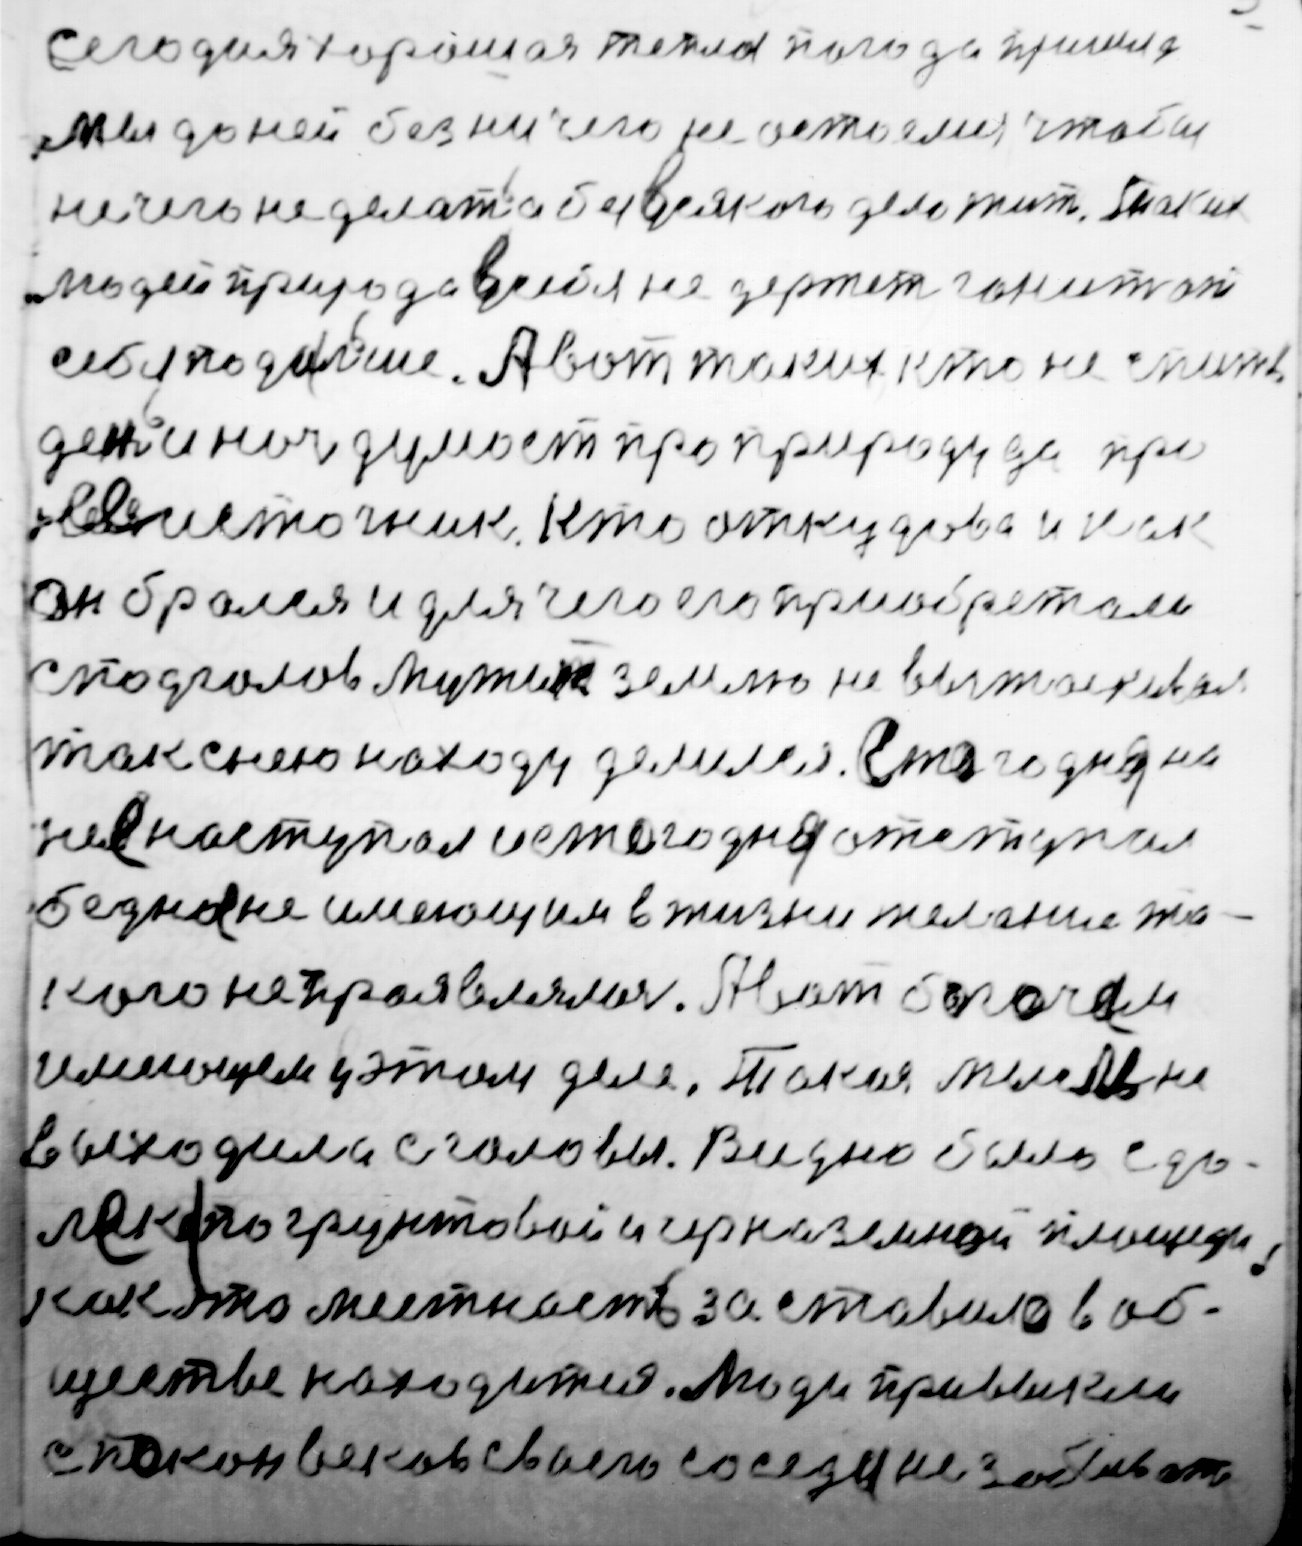 Сегодня хорошая тепла погода пришла
мы до ней без ничего не остоемся чтобы
ничего не делать а без всякого дела жит. Таких
людей природа в себя не держет гонит от
себя подальше. А вот таких кто не спить
день и ноч думает про природу да про
источник. Кто откудова и как
он брался и для чего его приобретали
сподголов мужик землю не вытаскивал
так с нею находу делился. С того дня на
нее наступал и с того дня отступал
бедное не имеющим в жизни желание та-
кого не проявлялся. А вот богачем
имеющем у этом деле. Такая мысль не
выходила с головы. Видно было сда-
лека по грунтовой и черназемной площеди
как то местность заставила в об-
ществе находится. Люди привыкли
споконвеков своего соседа не забывать